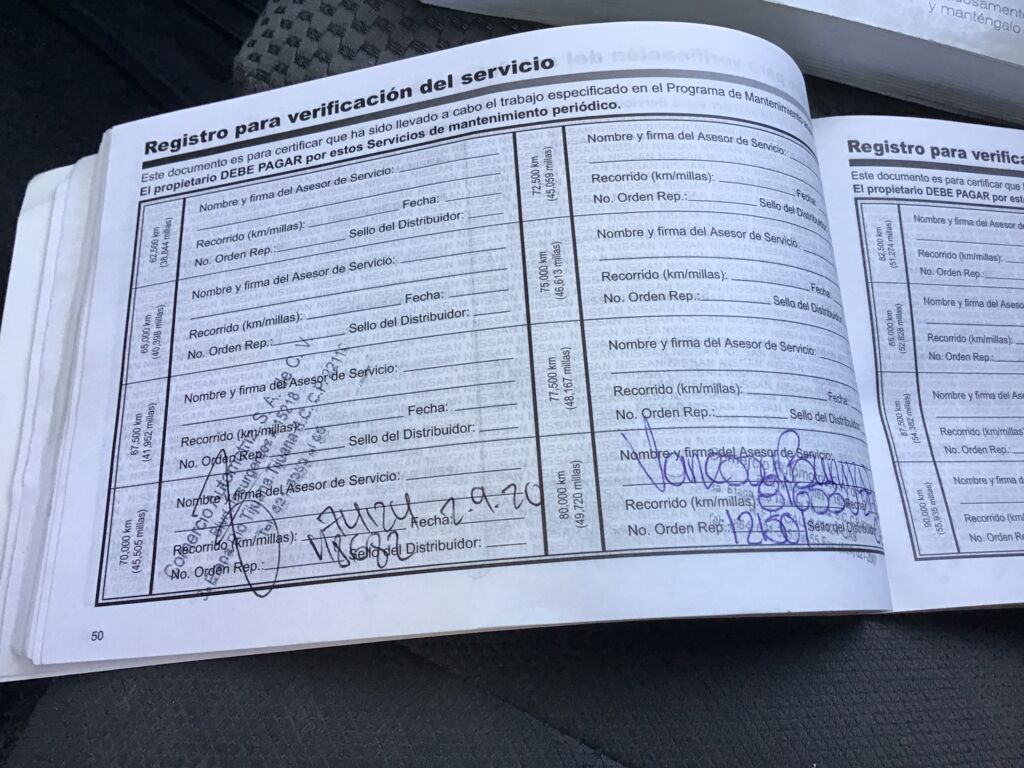 y manténgalo
Registro para verificación del servicio
Este documento es para certificar que ha sido llevado a cabo el trabajo especificado en el Programa de Mantenimiento
El propietario DEBE PAGAR por estos Servicios de mantenimiento periódico.
62,500 km
(38,844 millas)
Nombre y firma del Asesor de Servicio:
Recorrido (km/millas): Fecha:
No. Orden Rep.: Sello del Distribuidor:
65,000 km
(40,398 millas)
Nombre y firma del Asesor de Servicio:
Recorrido (km/millas): Fecha:
No. Orden Rep.: Sello del Distribuidor:
67,500 km
(41,952 millas)
Nombre y firma del Asesor de Servicio:
Recorrido (km/millas): Fecha:
No. Orden Rep.: Sello del Distribuidor:
70,000 km
(45,505 millas)
Nombre y firma del Asesor de Servicio:
Recorrido (km/millas): Fecha: 2.9.20
No. Orden Rep.: Sello del Distribuidor:
Comercio Automotriz, S.A. de C.V.
72,500 km
(45,059 millas)
Nombre y firma del Asesor de Servicio:
Recorrido (km/millas): Fecha:
No. Orden Rep.: Sello del Distribuidor
75,000 km
(46,613 millas)
Nombre y firma del Asesor de Servicio:
Recorrido (km/millas): Fecha:
No. Orden Rep.: Sello del Distribuidor
77,500 km
(48,167 millas)
Nombre y firma del Asesor de Servicio:
Recorrido (km/millas): Fecha:
No. Orden Rep.: Sello del Distribuidor
80,000 km
(49,720 millas)
Nombre y firma del Asesor de Servicio:
Recorrido (km/millas)
No. Orden Rep. Sello del Distribuidor
50
Registro para verifica
Este documento es para certificar que
El propietario DEBE PAGAR por est
82,500 km
(51,274 millas)
Nombre y firma del Asesor d
Recorrido (km/millas):
No. Orden Rep.:
85,000 km
(52,828 millas)
Nombre y firma del Aseso
Recorrido (km/millas):
No. Orden Rep.:
87,500 km
(54,382 millas)
Nombre y firma del Ases
Recorrido (km/millas)
No. Orden Rep.:
90,000 km
(55,935 millas)
Nombre y firma del As
Recorrido (km/milla
No. Orden R